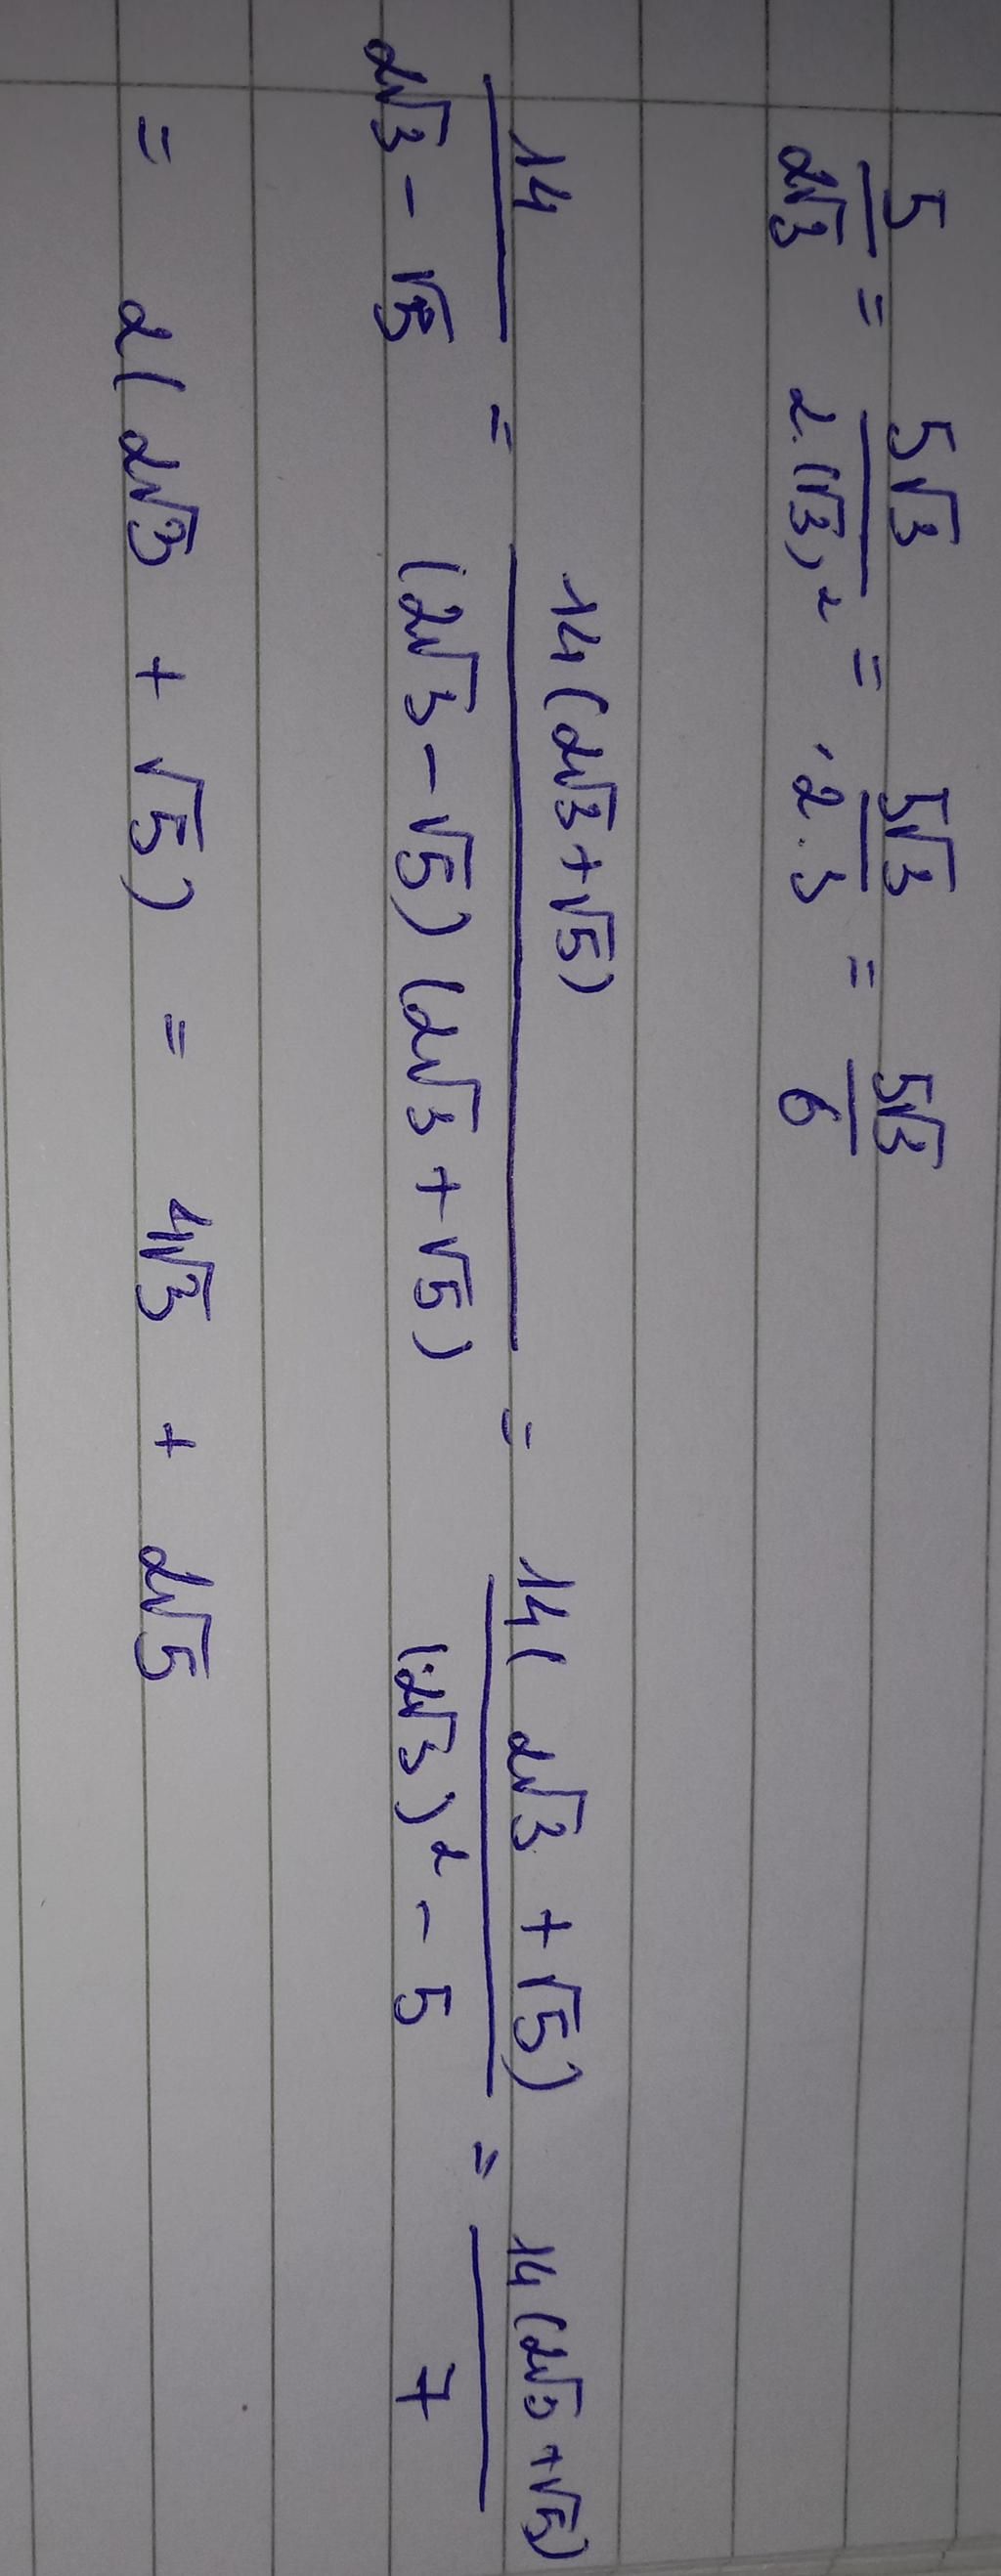 5/(2√3) = 5√3/(2.(√3)²) = 5√3/(2.3) = 5√3/6
14/(2√3 - √5) = 14(2√3+√5)/((2√3-√5)(2√3+√5)) = 14(2√3+√5)/((2√3)²-5) = 14(2√3+√5)/7
= 2(2√3 + √5) = 4√3 + 2√5